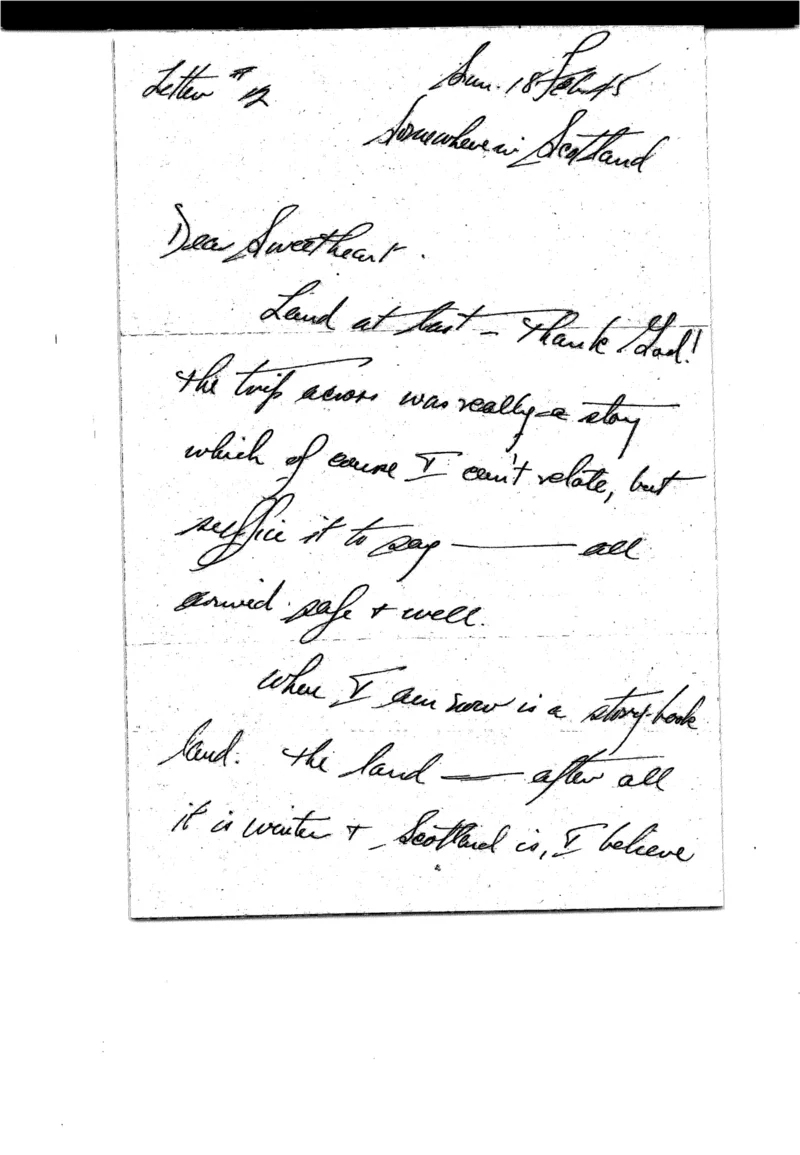 Letter # 12
Sun. 18 Feb 45
Somewhere in Scotland
Dear Sweetheart.
Land at last – Thank God!
The trip across was really a story
which of course I can't relate, but
suffice it to say — all
arrived safe + well.
Where I am now is a story-book
land. The land — after all
it is winter + Scotland is, I believe